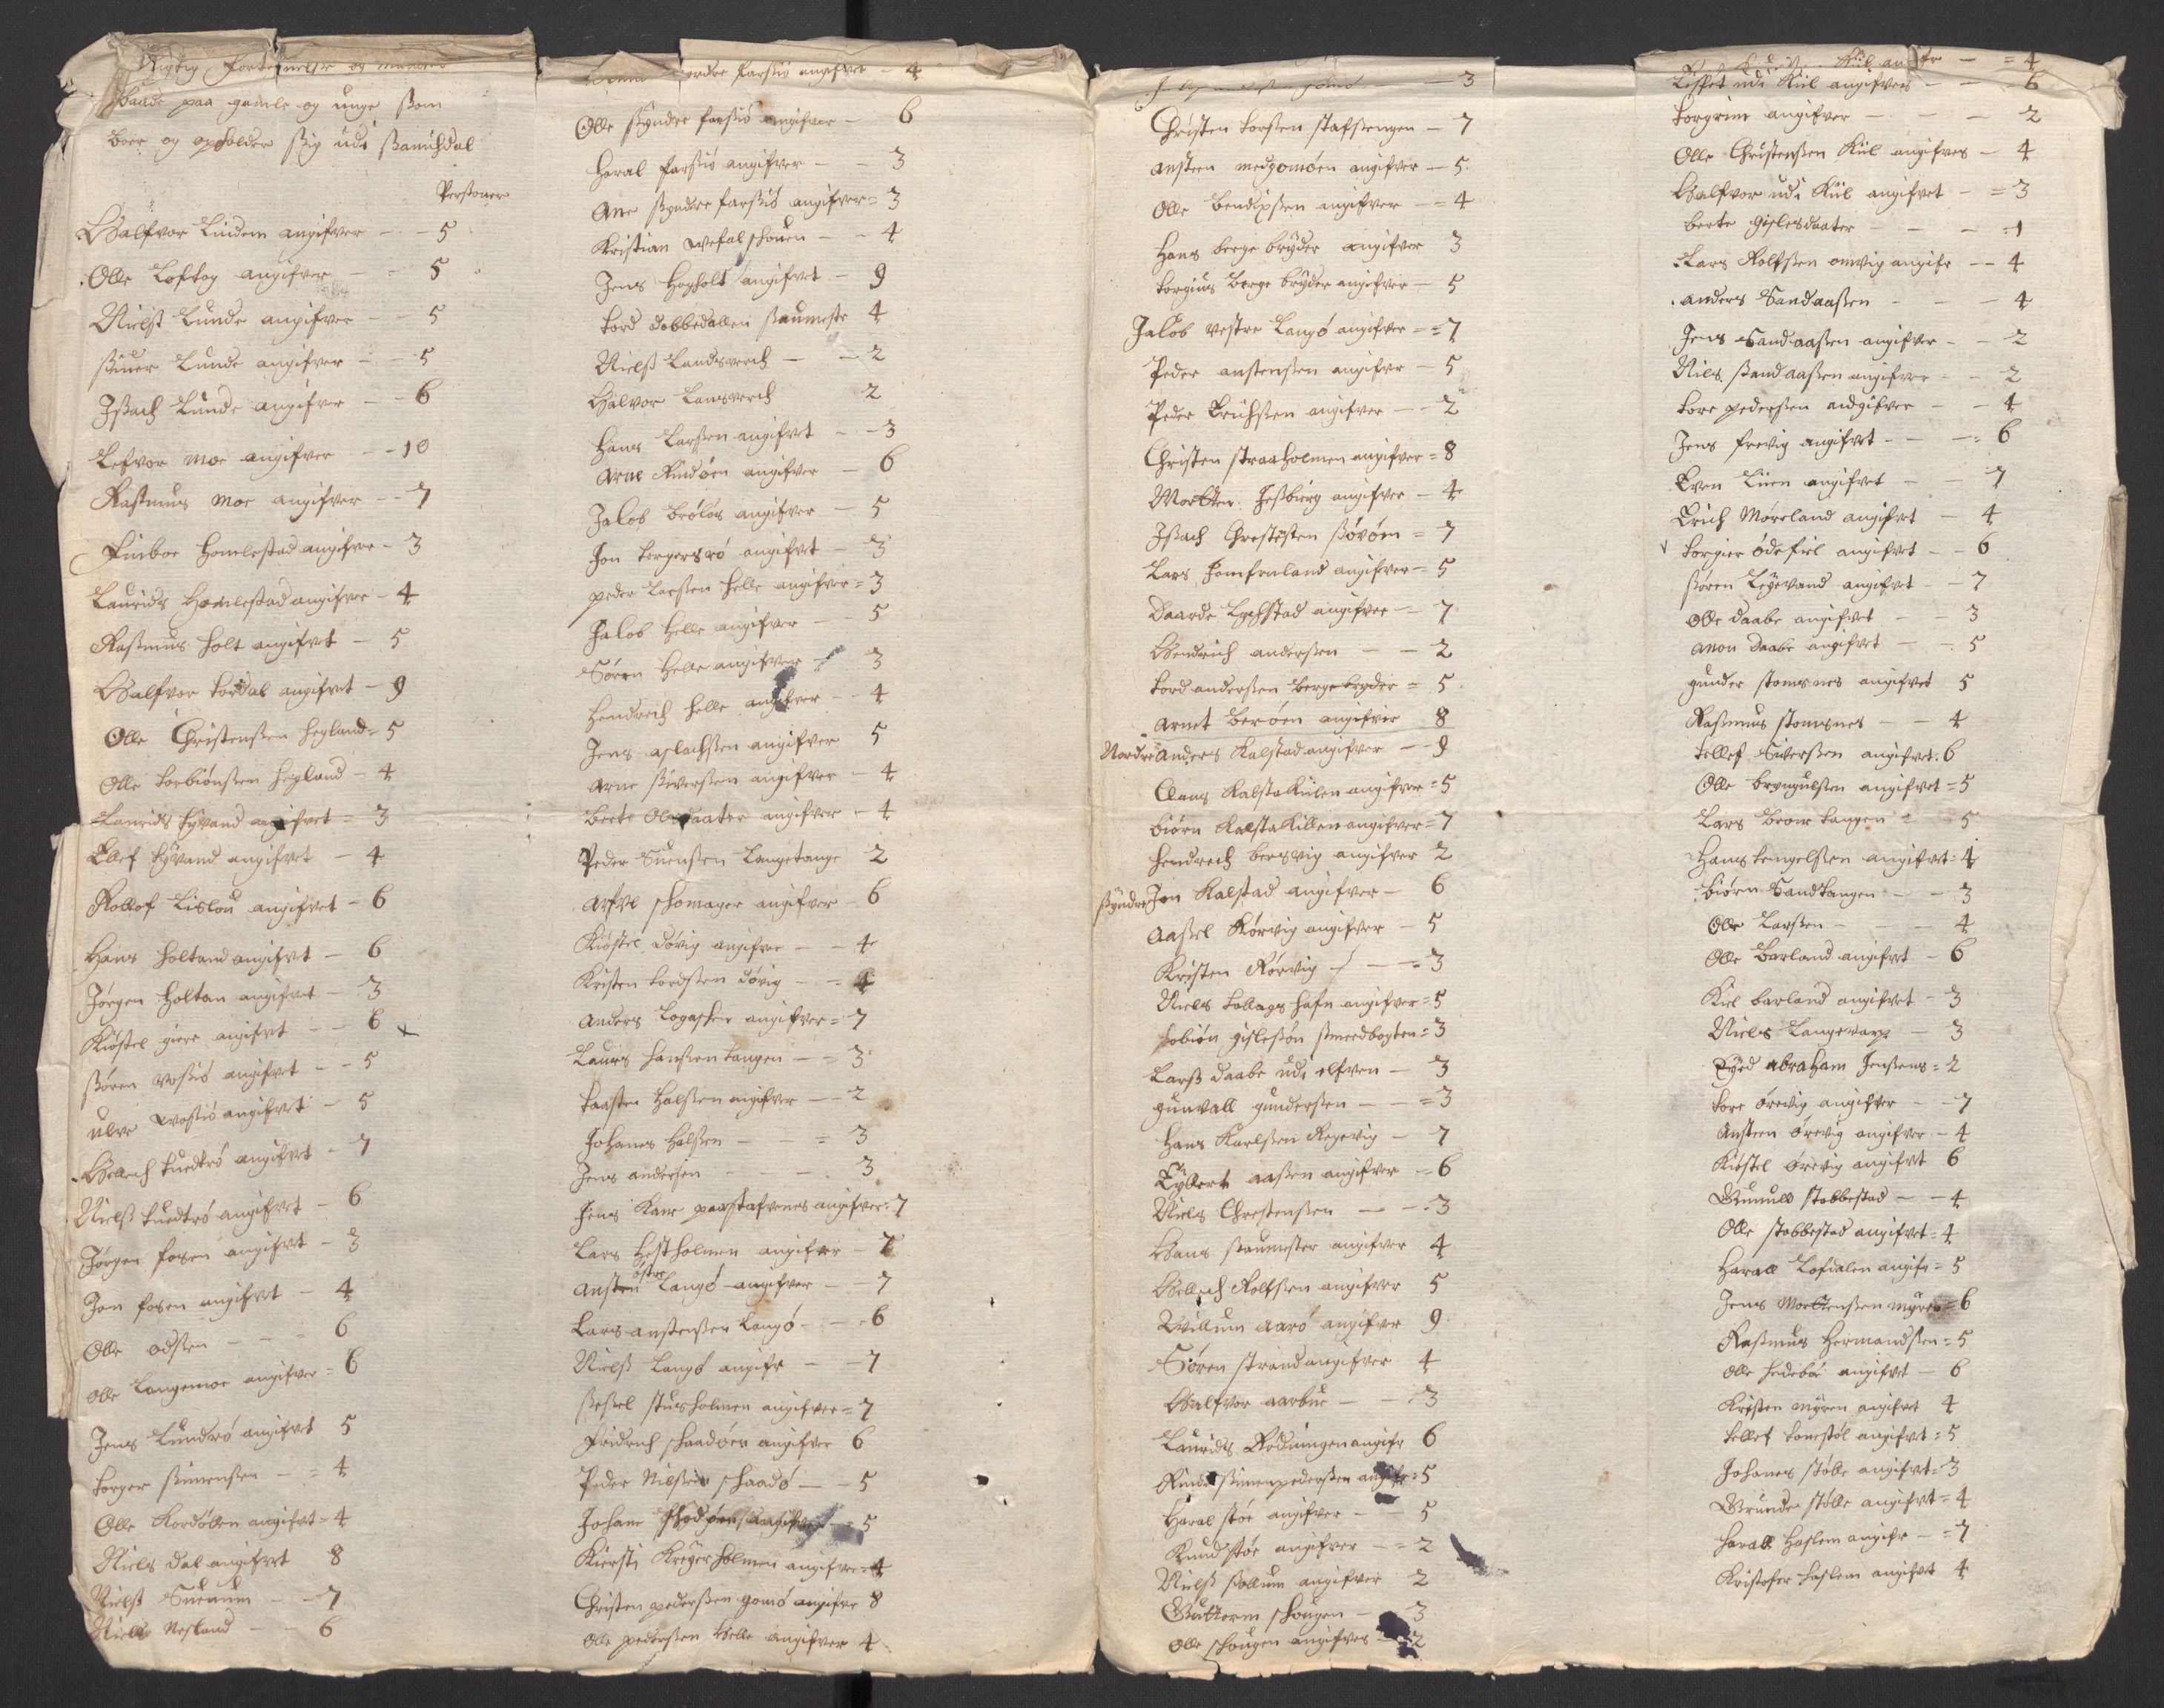 Rigtig fortegnelse og mandtal
baade paa gamle og unge ssom
boer og opholder ssig udi ssanichdal
Perssoner
Halfvor Lindem angifver - - 5
Olle Loftog angifver - = 5
Nielss Lunde angifver - - 5
ssiuer Lunde angifver - - 5
Issach Lunde angifver - - 6
Lefvor moe angifver - - 10
Rassmus moe angifver - - 7
Finboe Homlestad angifver - 3
Laurids Homlestad angifver - 4
Rassmus holt angifvet - 5
Halfvor tordal angifvet - 9
Olle Christenssen hegland = 5
Olle torbiönssen hegland - 4
Laurids hÿvand angifvet = 3
Ellef hÿvand angifvet - 4
Rollof Lislou angifvet - 6
Hans holtand angifvet - 6
Jörgen Holtan angifvet - 3
Kiöstel giere angifvet - - 6
ssören vossiö angifvet - - 5
ulve vossiö angifvet - 5
Hellech tuedtrö angifvet - 7
Nielss tuedtrö angifvet - 6
Jörgen fosen angifvet - 3
Jon fosen angifvet - 4
Olle odssen - - - 6
Olle Langemoe angifver = 6
Jens Lundrö angifvet 5
torger ssimenssen - = 4
Olle Kordölen angifvet = 4
Niels dal angifvet 8
Nielss Sueinum - - 7
Niels Nesland - - 6
nordre farssiö angifver - 4
Olle ssyndre farssiö angifver - 6
Haral farssiö angifver - - 3
Ane ssyndre farssiö angifver = 3
Kristian vefalschouen - - 4
Jens Hogholt angifvet - 9
tord dobbedallen ssaumester 4
Nielss Landsverch - - 2
Halvor Lansverch 2
Hans Larssen angifvet - - 3
Arne Rindöen angifver - 6
Jakob brölös angifver - 5
Jon torgersrö angifvet - 3
peder Larssen helle angifver = 3
Jakob Helle angifver - - 5
Sören Helle angifver - 3
Hendrech helle angifver - - 4
Jens aslachssen angifver 5
Arne ssiverssen angifver - 4
Berte Olsdaater angifver - 4
Peder Suenssen Langetange 2
Arfve schomager angifver - 6
Kiöstel dövig angifver - - 4
Kristen tordssen dövig - - 4
Anders Logasher angifver = 7
Laurs Hanssen tangen - = 3
taasten Halssen angifver - - 2
Johanes Halssen - - = 3
Jens andersen - - - 3
Jens Kane paa stafvenes angifver = 7
Lars Hestholmen angifver - 7
östre
Ansten Langö angifver - - 7
Lars anstenssen Langö - - 6
Nielss Langö angifr - - 7
ssessel stuesholmen angifver = 7
Fridrich schaadöen angifver 6
Peder Nilssen schaadö - - 5
Johane schodöens angifver - = 5
Kiersti Kreÿerholmen angifver = 4
Christen pederssen gomö angifver 8
Olle pederssen Helle angifver 4
3
Christen torssen stafssengen - 7
ansteen medgomöen angifver - 5
Olle bendixssen angifver - = 4
Hans bergebrÿder angifver 3
torgius bergebrÿder angifver - 5
Jakob vestre Langö angifver = = 7
Peder anstenssen angifver - 5
Peder Erichssen angifver - - 2
Christen straaholmen angifver = 8
Mortten Jessbierg angifver - 4
Issach Chrestesten ssövöen = 7
Lars Jomfruland angifver - 5
daarde Lychstad angifver - = 7
Hendrich anderssen - - 2
tord anderssen bergebryder = 5
Arnet beröen angifver 8
Nordre Anders Kalstad angifver - - 9
Claus Kalstakiilen angifver = 5
biörn Kalstakillen angifver = 7
Hendrech bersvig angifver 2
ssyndre Jon Kalstad angifver - 6
Aassel Körvig angifver - 5
Kristen Rörvig - - = 3
Niels tollagshafn angifver = 5
tobiön gislessön ssmedbogten = 3
Larss daabe udi elfven - 3
gunvall gunderssen - - = 3
Hans Karlssen Regevig - 7
Eÿllert aassen angifver - 6
Niels Chrestenssen - - = 3
Hans ssaumester angifver 4
Hellech Rolfssen angifver 5
Willum aarö angifver 9
Sören strand angifver 4
Halfvor aarbue - - 3
Laurids Rödningen angifr 6
ssimenpederssen angifr = 5
Haral stöe angifver - - 5
Knud stöe angifver - = 2
Nielss ssollum angifver 2
Guttorm schougen - - 3
Olle schougen angifver - = 2
udi Kiil angifr - = 4
Liffet udi Kiil angifver - - 6
torgrim angifver - - - 2
Olle Christenssen Kiil angifver - 4
Halfvor udi Kiil angifvet - = 3
berte gislesdaater - - - = 1
Lars Rolfssen omvig angifr - - 4
anders Sandaassen - - - 4
Jens Sandaassen angifver - - 2
Niels ssandaassen angifver - - 2
tore pederssen andgifver - - 4
Jens frevig angifvet - - = 6
Even Liien angifvet - - 7
Erich Möreland angifvet - 4
torgier ödefiel angifvet - - 6
ssören Leÿevand angifvet - - 7
Olle daabe angifvet - - 3
Amon daabe angifvet - - 5
gunder stomnes angifvet 5
Rassmus stomsnes - - 4
tellef Siverssen angifvet = 6
Olle bryngulssen angifvet = 5
Lars broer tangen = 5
Hans tengelssen angifvet = 4
biörn Sandtangen - - 3
Olle Larssen - - - 4
Olle barland angifvet - 6
Kiel barland angifvet - 3
Niels Langevarp - 3
Syed abraham Jenssens = 2
tore örevig angifver - - 7
Ansteen örevig angifver - 4
Kiöstel örevig angifvet 6
Gunuld stabbestad - - 4
Olle stabbestad angifvet = 4
Harall Lofdalen angifr = 5
Jens Mortenssen myren = 6
Rassmus Hermandssen = 5
Olle hedeböe angifvet - 6
Kristen myren angifvet 4
tellef tonestöl angifvet = 5
Johanes stölle angifvet = 3
Grunde stölle angifvet = 4
Harall Haslem angifr - = 7
Kristofer haslem angifvet 4